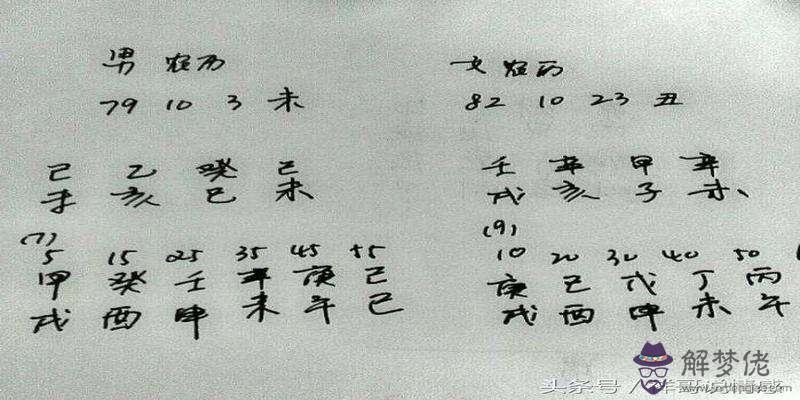 男 农历
79 10 3 未
己 乙 癸 己
未 亥 巳 未
(7)
5 15 25 35 45 55
甲 癸 壬 辛 庚 己
戌 酉 申 未 午 巳
女 农历
82 10 23 丑
壬 辛 甲 辛
戌 亥 子 未
(9)
10 20 30 40 50
庚 己 戊 丁 丙
戌 酉 申 未 午
头条号 /
解梦佬